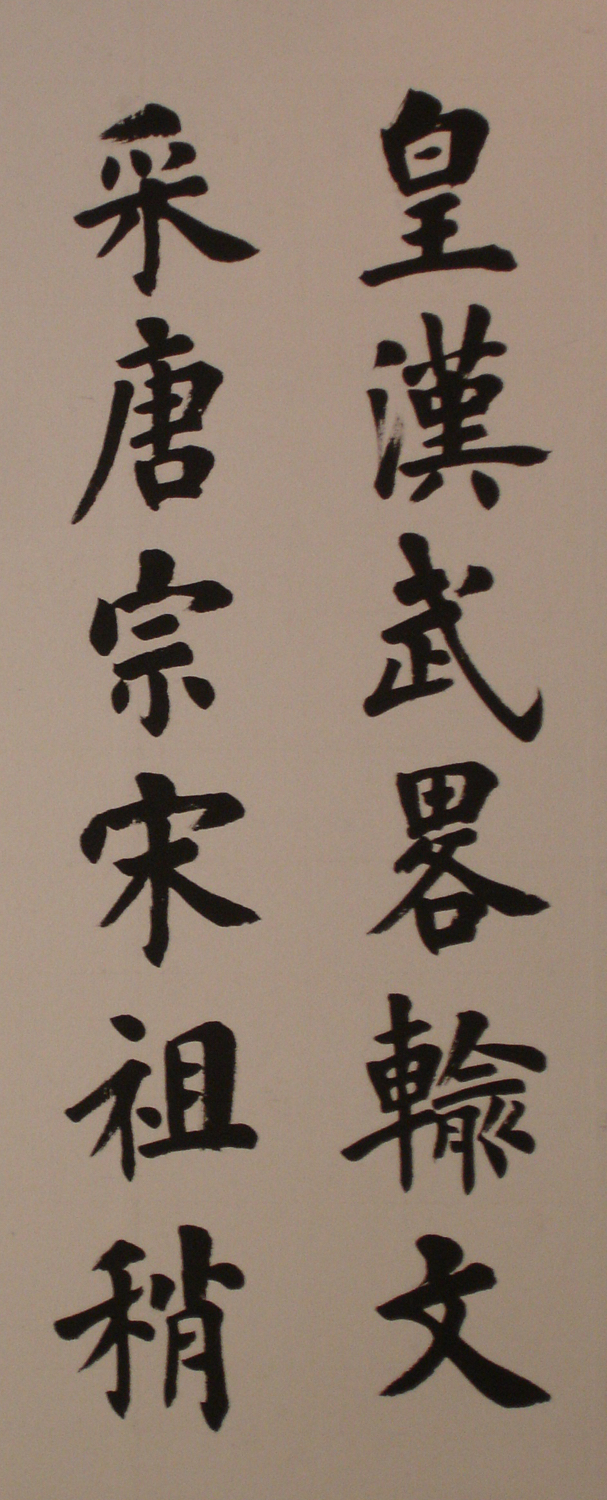 皇漢武畧輸文
采唐宗宋祖稍